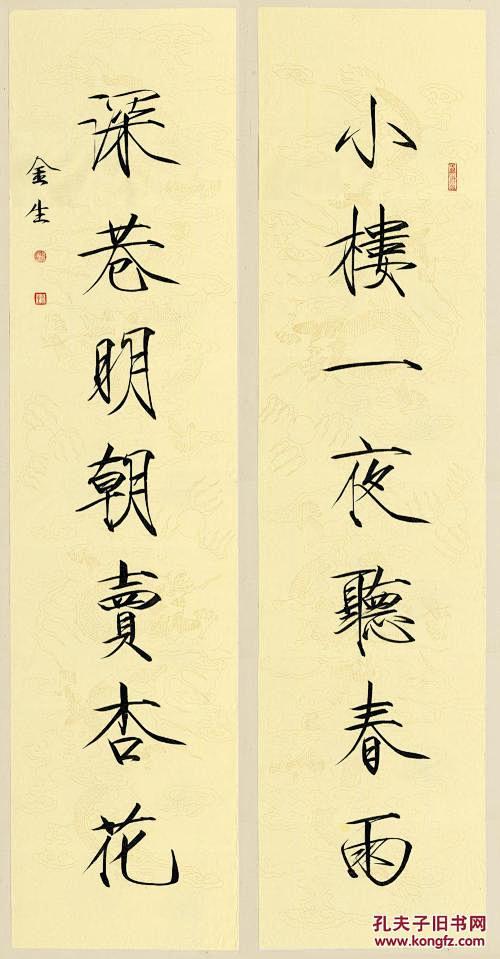 小樓一夜聽春雨
深巷明朝賣杏花
金生
孔夫子旧书网
www.kongfz.com